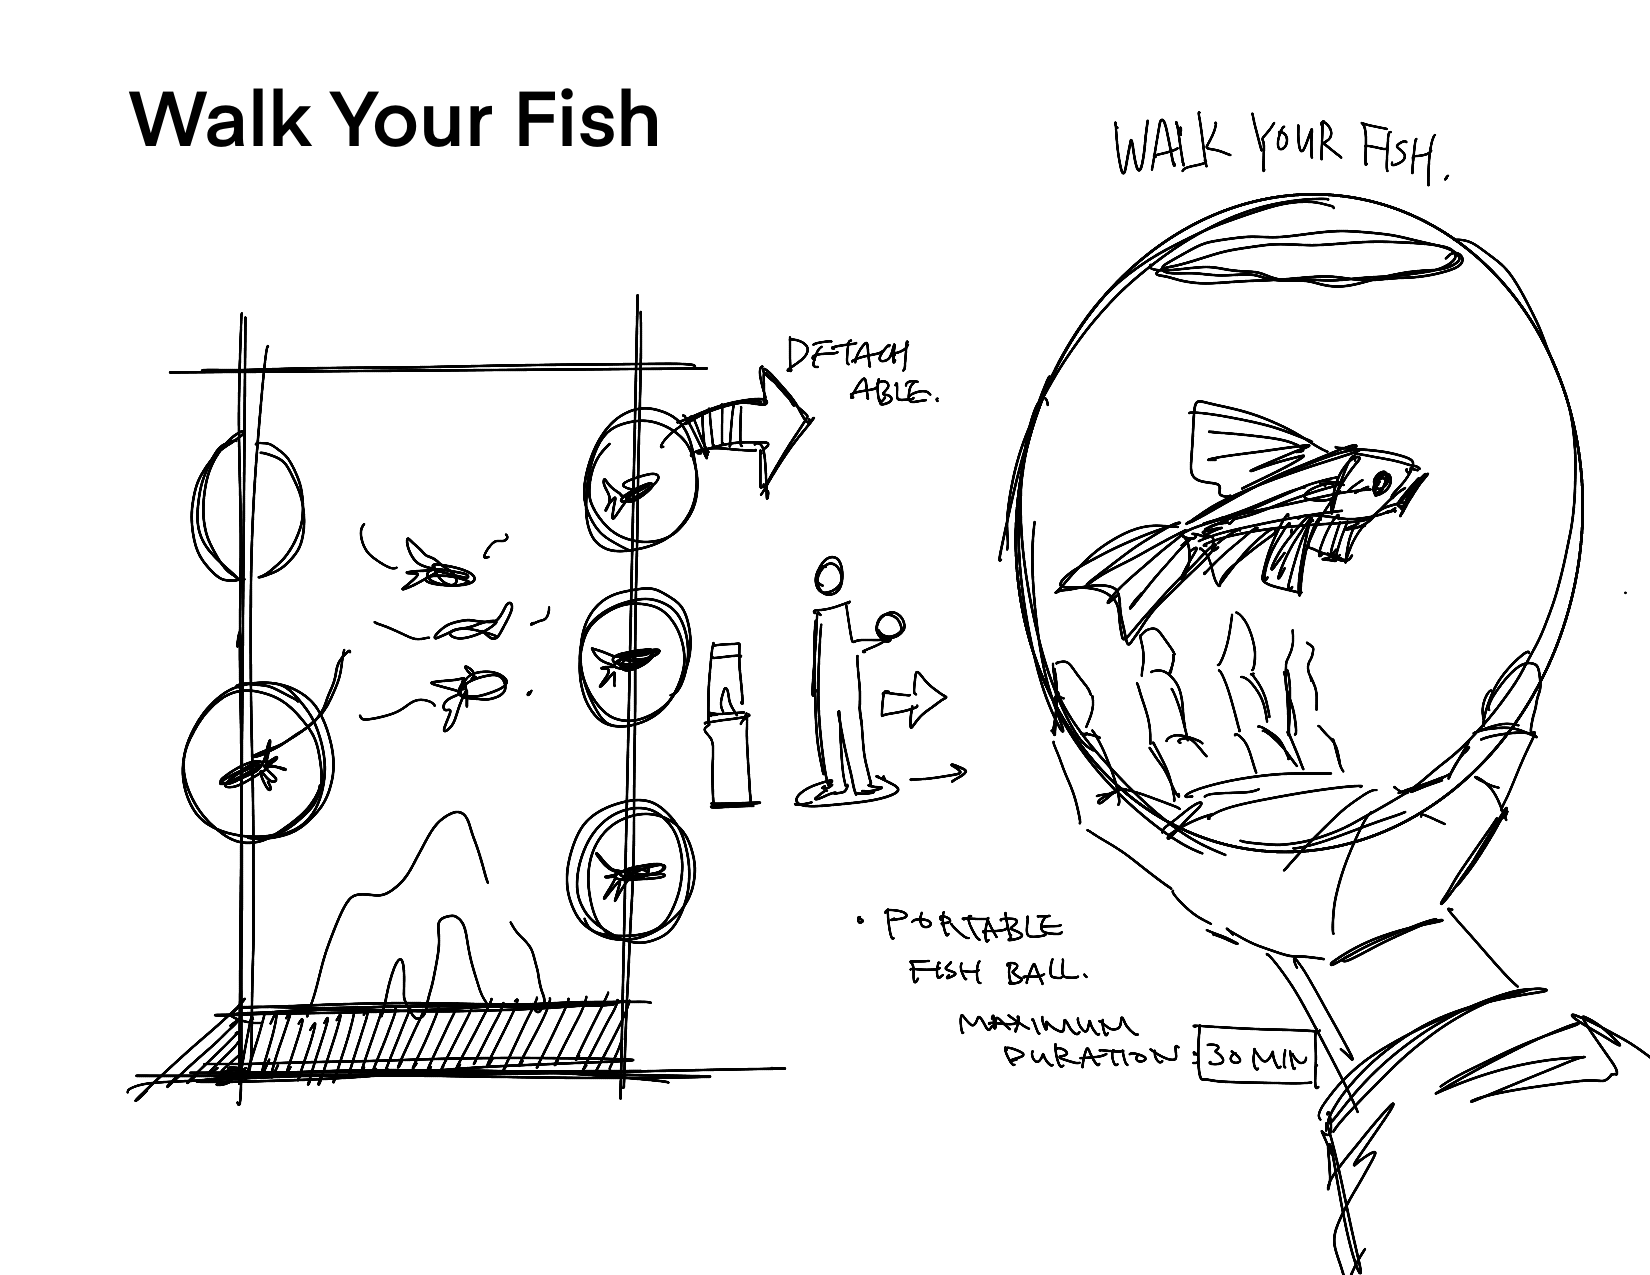 Walk Your Fish
WALK YOUR FISH.
DETACH
ABLE.
• PORTABLE
FISH BALL.
MAXIMUM
DURATION: 30 MIN